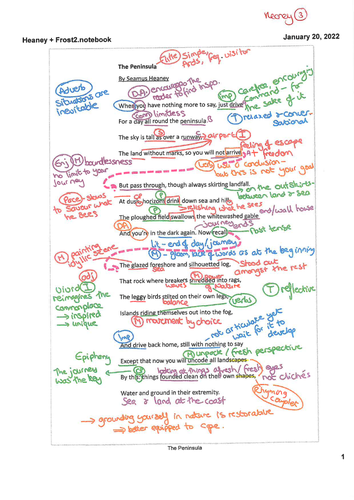 Heaney ③
Heaney + Frost2.notebook
January 20, 2022
Title Simple,
The Peninsula
By Seamus Heaney
D.A. encourages the
reader to find inspo.
Adverb
Situations are
inevitable
Imp
Carefree, encouraging
command - for
the sake of it
When you have nothing more to say, just drive
limitless
For a day all round the peninsula.
T relaxed & conver-
sational
The sky is tall as over a runway,
airport I
The land without marks, so you will not arrive
feeling of escape
At freedom
Enj M boundlessness
no limit to your
journey
conclusion -
but this is not your goal
But pass through, though always skirting landfall.
on the outskirts
between land & sea
Pace: slow
to savour what
he sees
At dusk, horizons drink down sea and hill,
what he sees
The ploughed field swallows the whitewashed gable
end/wall house
journey ends
And you're in the dark again. Now recall
Past tense
end of day/journey
lack of words as at the beginning
M painting
idyllic scene
The glazed foreshore and silhouetted log,
Stood out
amongst the rest
adj
That rock where breakers shredded into rags,
waves of Nature
Vivid I
reimagines the
commonplace
→ inspired
→ unique
The leggy birds stilted on their own legs,
balance
verbs
T reflective
Islands riding themselves out into the fog,
M movement by choice
Imp
not articulate yet
wait for it to
develop
And drive back home, still with nothing to say
M unpack / fresh perspective
Epiphany
The journey
was the key
Except that now you will uncode all landscapes
looking at things afresh / fresh eyes
By this: things founded clean on their own shapes,
not clichés
Rhyming
couplet
Water and ground in their extremity.
Sea & land at the coast
→ grounding yourself in nature is restorative
→ better equipped to cope.
The Peninsula
1